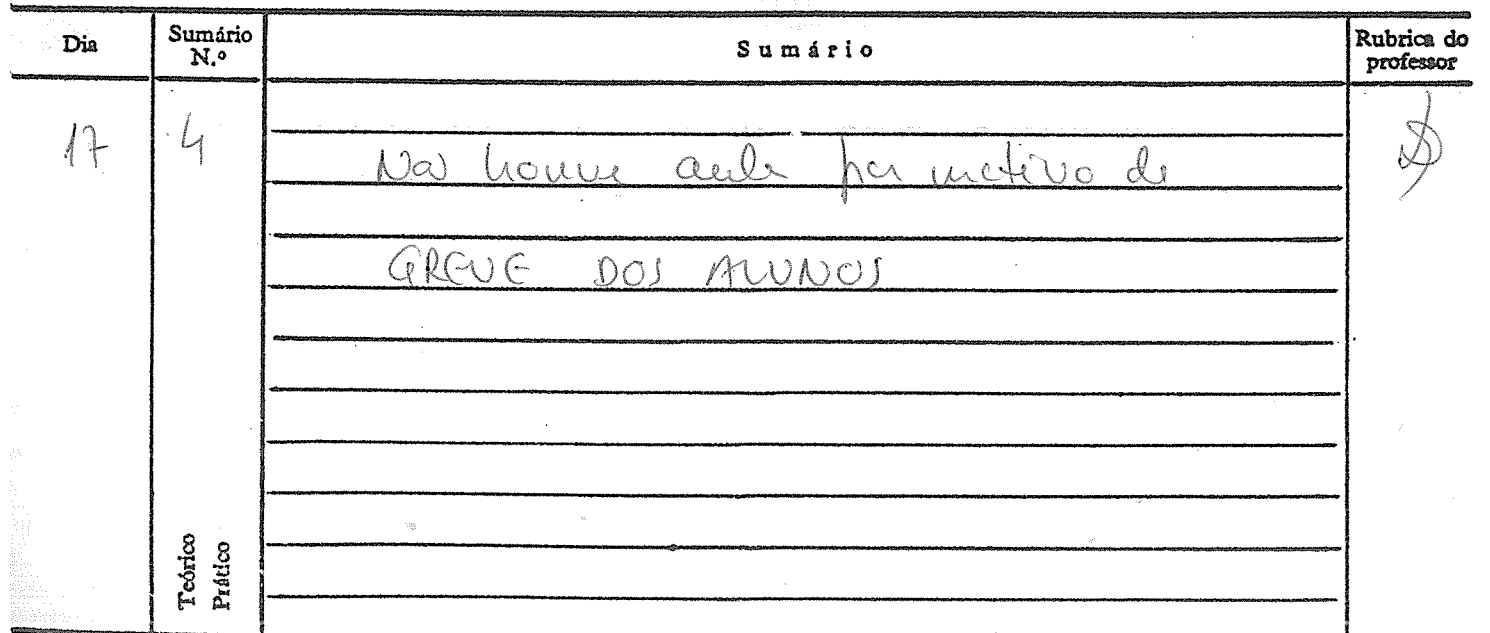 Dia Sumário N.º Sumário Rubrica do professor
17 4 Não houve aula por motivo de
GREVE DOS ALUNOS
Teórico
Prático